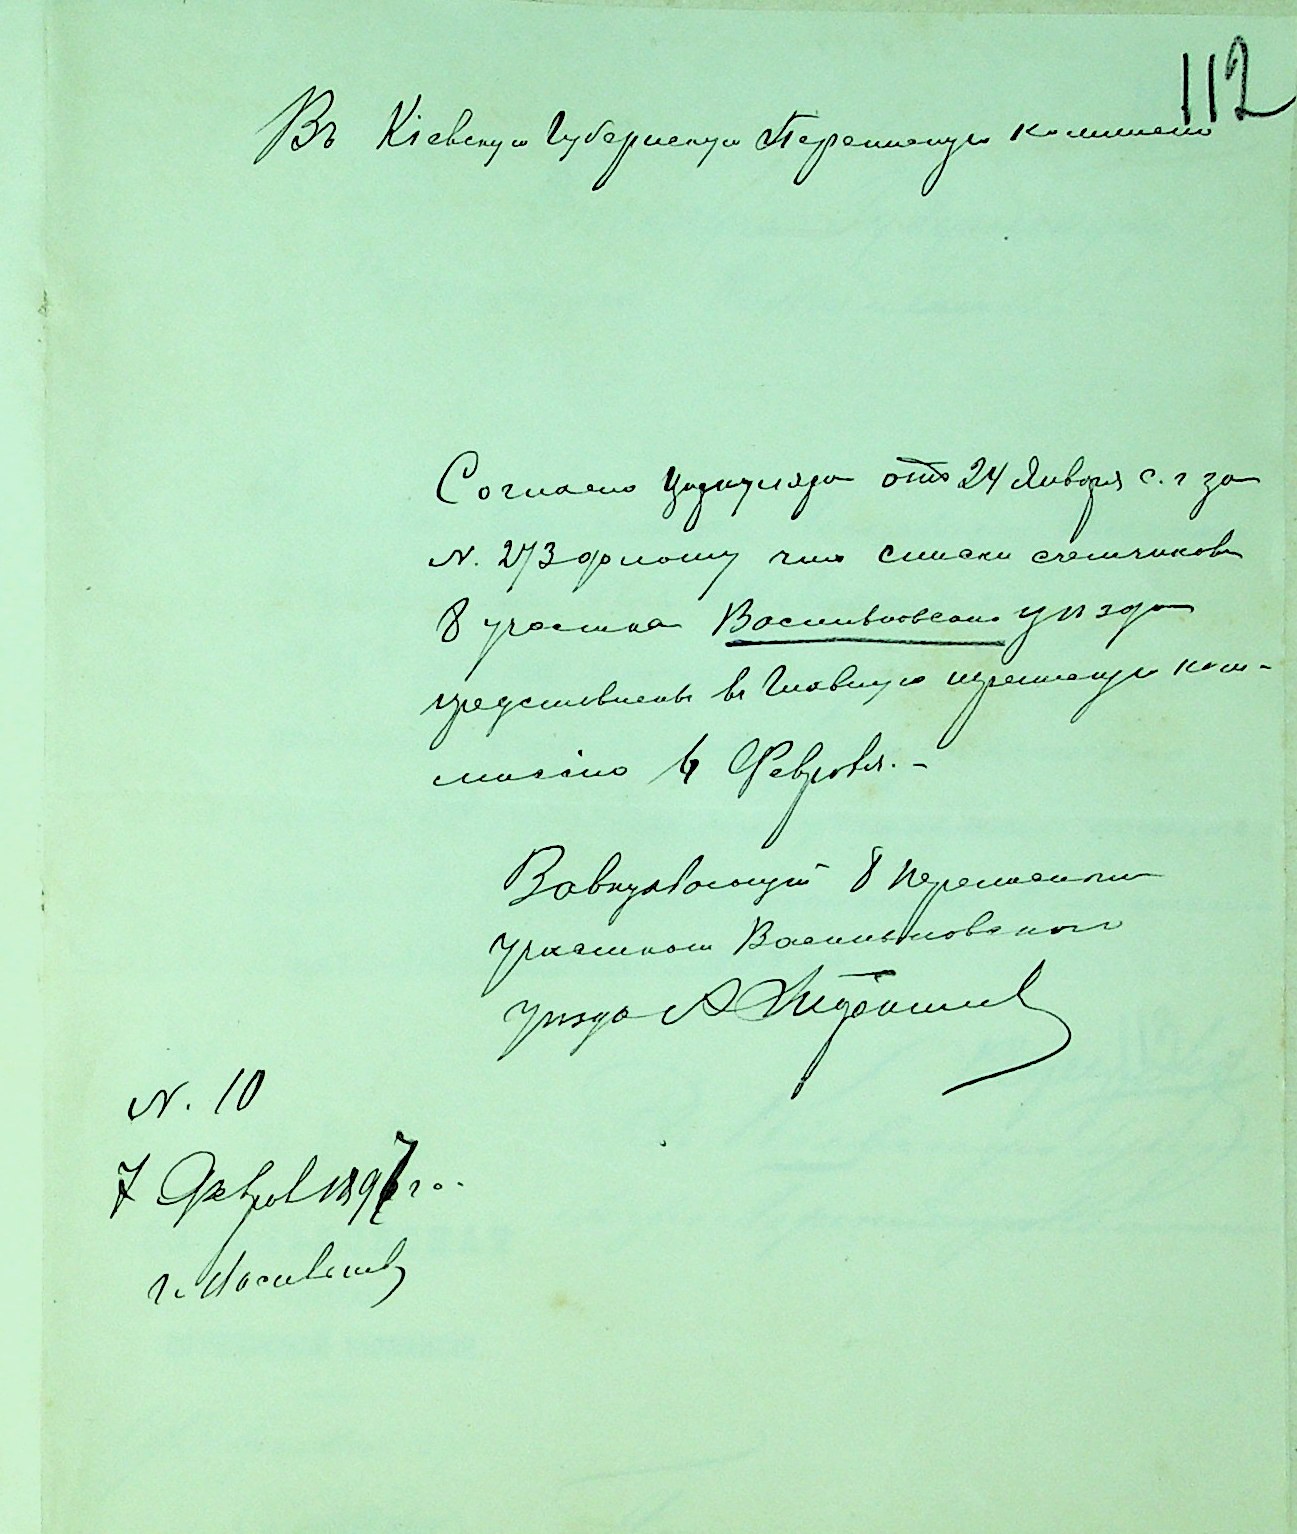 112
Въ Кіевскую Губернскую Переписную комиссію
Согласно циркуляра отъ 24 Января с. г за
N. 273 списки счетчиковъ
8 участка Васильковскаго уѣзда
представлены въ Главную переписную ком-
миссію 6 Февраля. –
Завѣдывающій 8 переписнымъ
участкомъ Васильковскаго
уѣзда А
N. 10
7 Феврал 1897 го.
г. Васильковъ